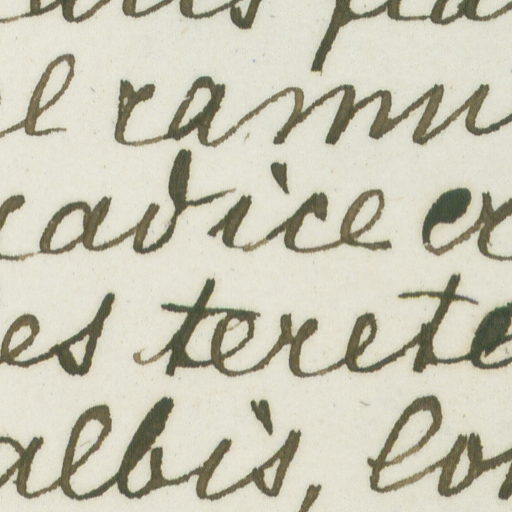 l ramu
radice ex
es terete
albis, lon